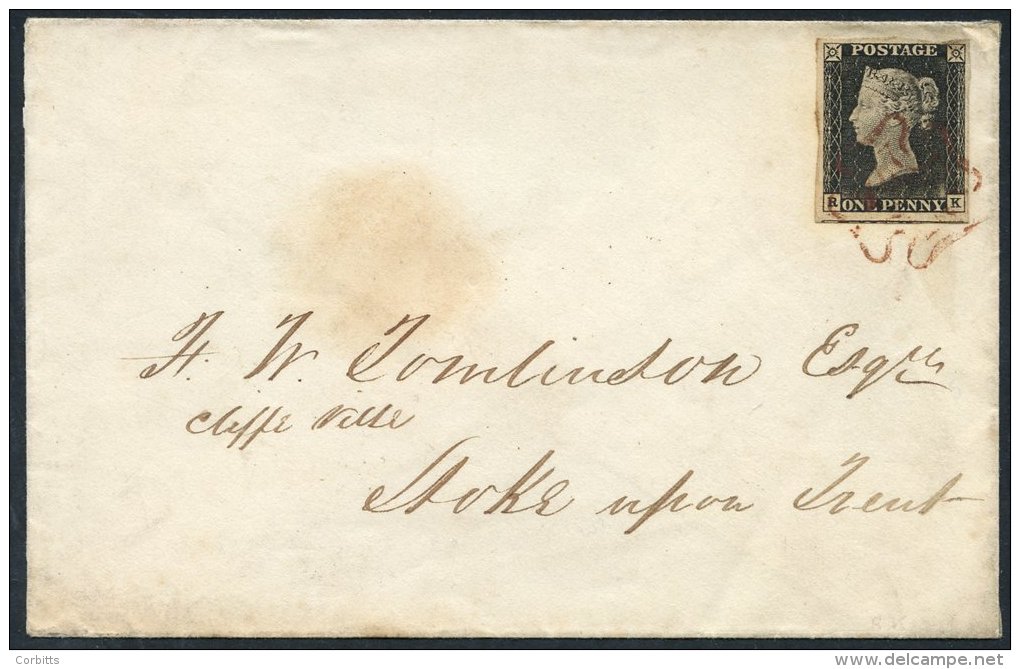 POSTAGE
R ONE PENNY K
H. W. Tomlinson Esqre
Cliffe Ville
Stoke upon Trent
© Corbitts
delcampe.net